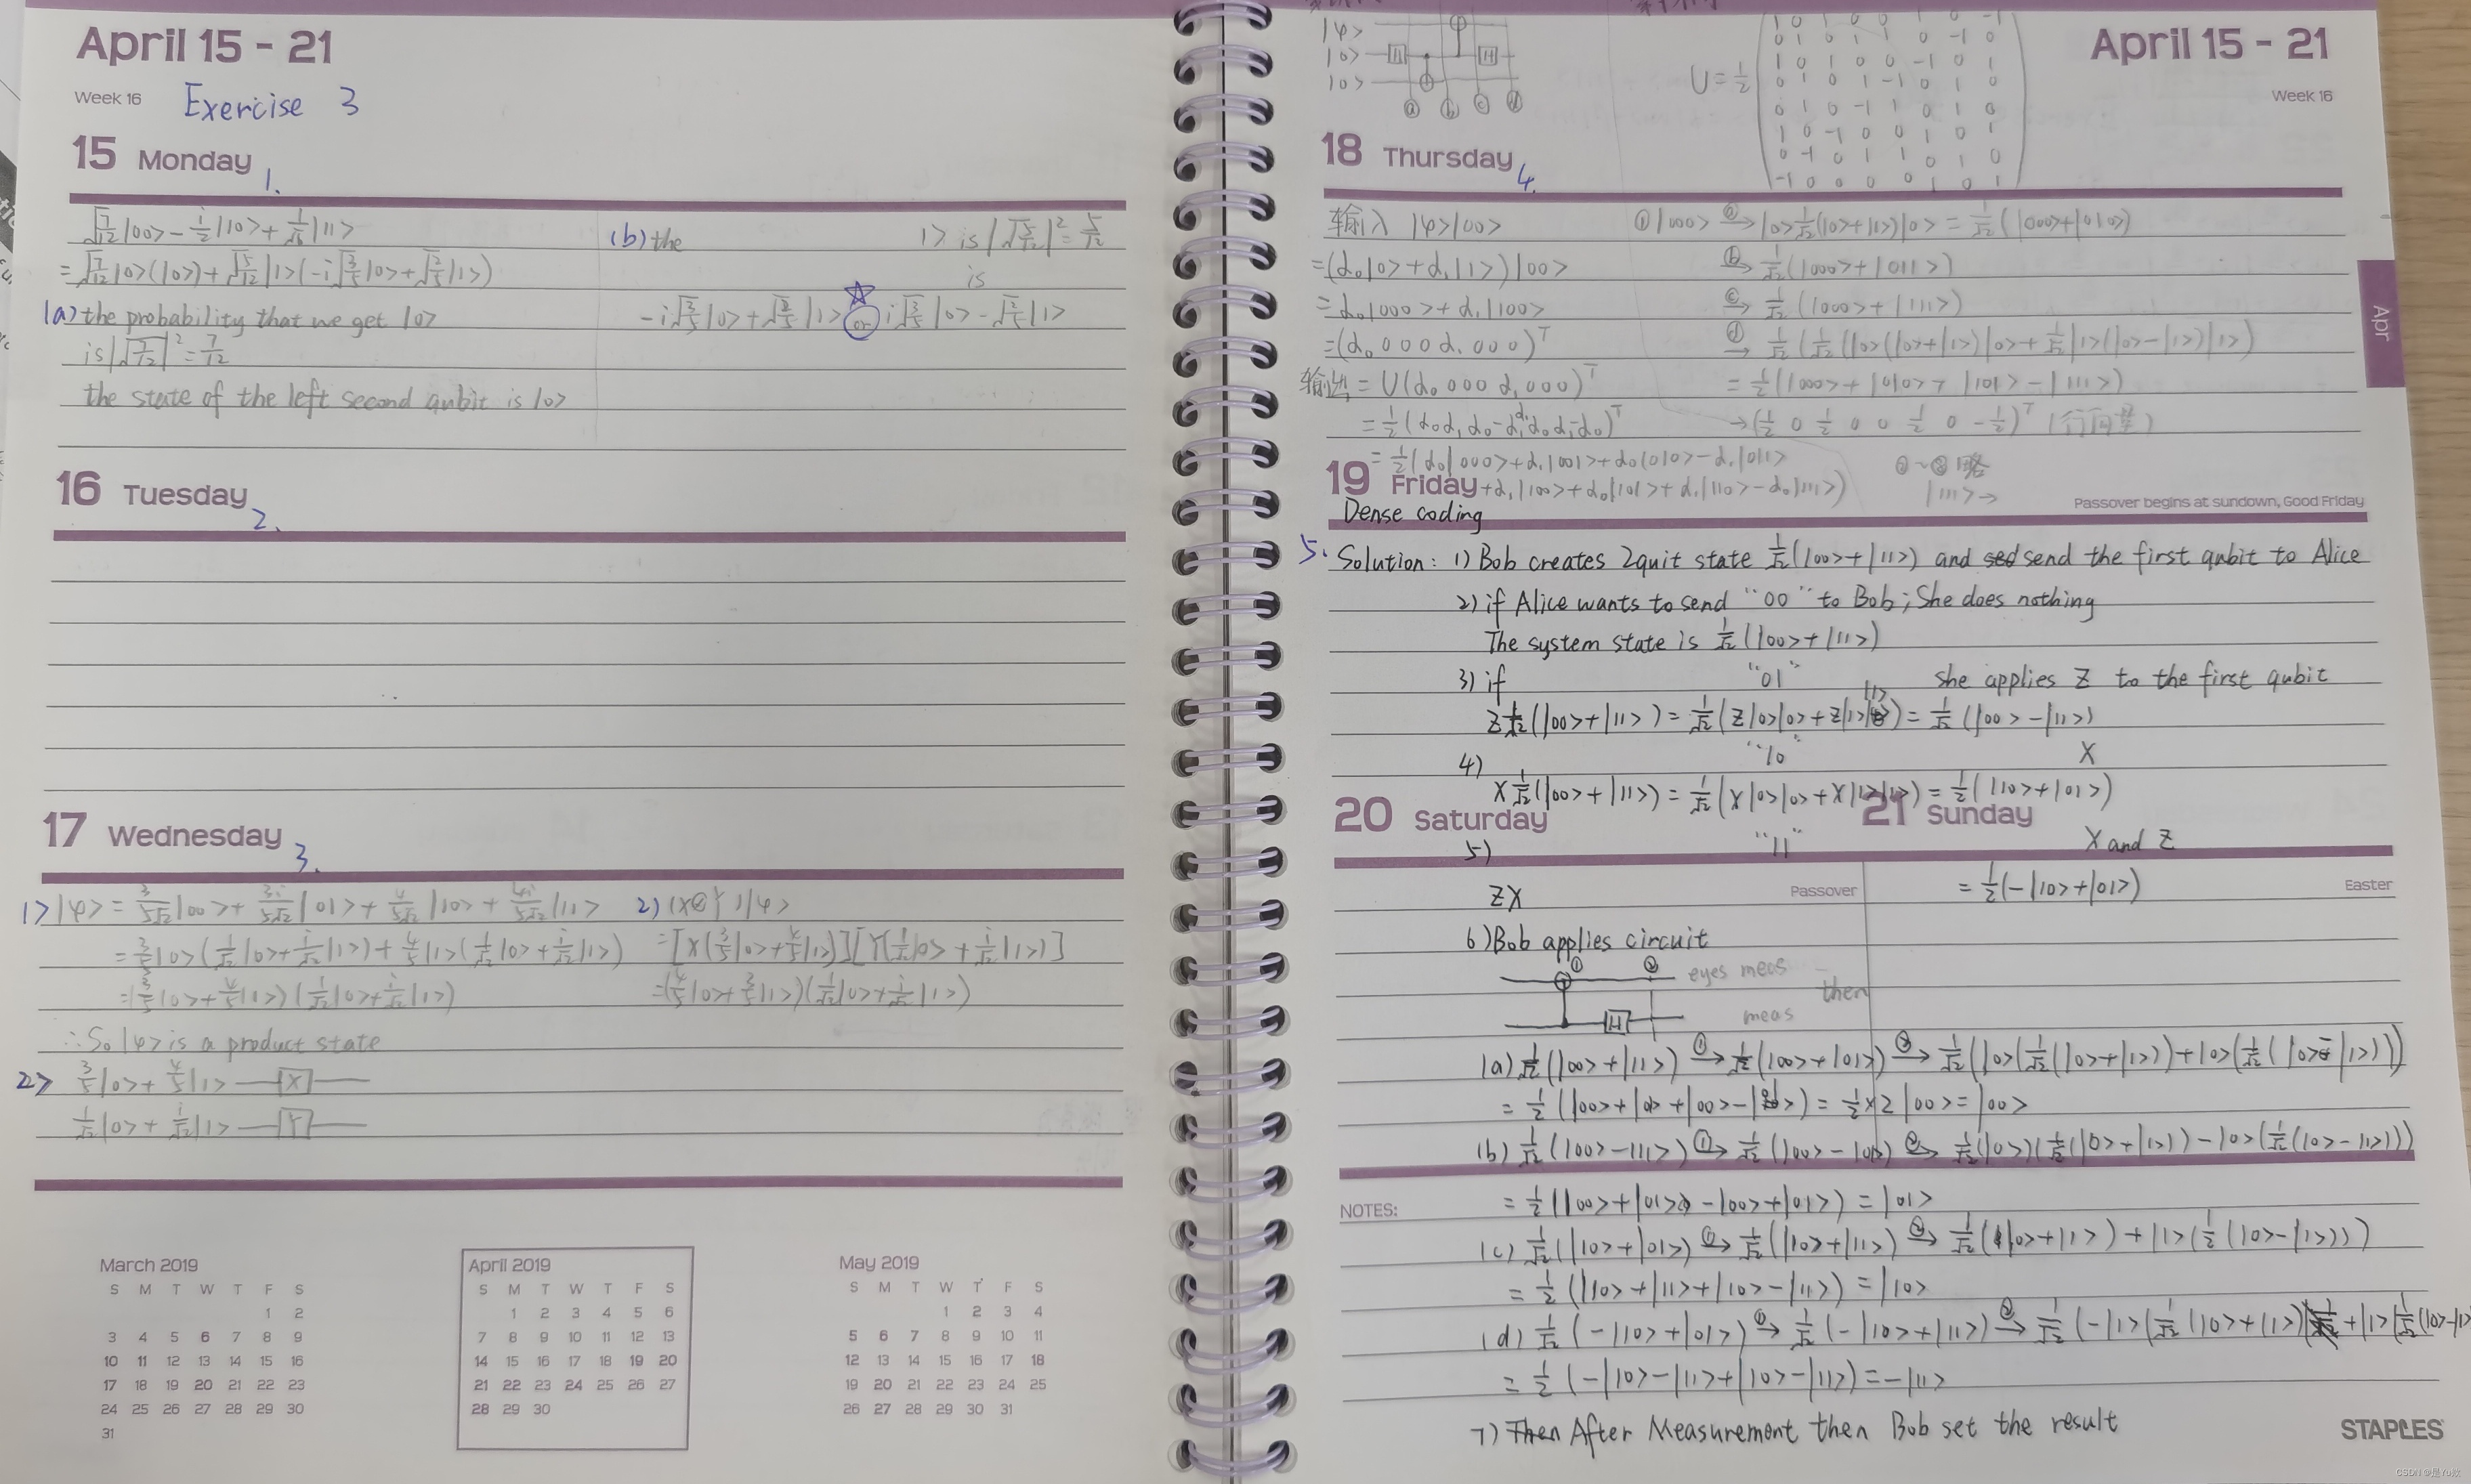 April 15 - 21
Week 16 Exercise 3
15 Monday 1.
√7/12|00> - i/2|10> + 1/√6|11>
= √7/12|0>(|0>) + √5/12|1>(-i√3/5|0> + √2/5|1>)
(a) the probability that we get |0>
is |√7/12|² = 7/12
the state of the left second qubit is |0>
(b) the |1> is |√5/12|² = 5/12
is
-i√3/5|0> + √2/5|1> or i√3/5|0> - √2/5|1>
16 Tuesday 2.
17 Wednesday 3.
1> |φ> = 3/5√2|00> + 3i/5√2|01> + 4/5√2|10> + 4i/5√2|11>
= 3/5|0>(1/√2|0> + i/√2|1>) + 4/5|1>(1/√2|0> + i/√2|1>)
= (3/5|0> + 4/5|1>)(1/√2|0> + i/√2|1>)
∴ So |φ> is a product state
2> 3/5|0> + 4/5|1> —[X]—
1/√2|0> + i/√2|1> —[Y]—
2) (X⊗Y)|φ>
= [X(3/5|0> + 4/5|1>)][Y(1/√2|0> + i/√2|1>)]
= (4/5|0> + 3/5|1>)(1/√2|0> + i/√2|1>)
March 2019
S M T W T F S
1 2
3 4 5 6 7 8 9
10 11 12 13 14 15 16
17 18 19 20 21 22 23
24 25 26 27 28 29 30
31
April 2019
S M T W T F S
1 2 3 4 5 6
7 8 9 10 11 12 13
14 15 16 17 18 19 20
21 22 23 24 25 26 27
28 29 30
May 2019
S M T W T F S
1 2 3 4
5 6 7 8 9 10 11
12 13 14 15 16 17 18
19 20 21 22 23 24 25
26 27 28 29 30 31
|φ>
|0> H H
|0>
ⓐ ⓑ ⓒ ⓓ
U = 1/2
1 0 1 0 0 1 0 -1
0 1 0 1 1 0 -1 0
1 0 1 0 0 -1 0 1
0 1 0 1 -1 0 1 0
0 1 0 -1 1 0 1 0
1 0 -1 0 0 1 0 1
0 -1 0 1 1 0 1 0
-1 0 0 0 0 1 0 1
April 15 - 21
Week 16
18 Thursday 4.
输入 |φ>|00>
= (α₀|0> + α₁|1>)|00>
= α₀|000> + α₁|100>
= (α₀ 0 0 0 α₁ 0 0 0)ᵀ
输出 = U(α₀ 0 0 0 α₁ 0 0 0)ᵀ
= 1/2(α₀ α₁ α₀ -α₁ α₁ α₀ α₁ -α₀)ᵀ
= 1/2(α₀|000> + α₁|001> + α₀|010> - α₁|011>
+ α₁|100> + α₀|101> + α₁|110> - α₀|111>)
① |000> ⓐ→ |0>1/√2(|0>+|1>)|0> = 1/√2(|000>+|010>)
ⓑ→ 1/√2(|000>+|011>)
ⓒ→ 1/√2(|000>+|111>)
ⓓ→ 1/√2(1/√2(|0>(|0>+|1>)|0> + 1/√2|1>(|0>-|1>)|1>)
= 1/2(|000> + |010> + |101> - |111>)
→ (1/2 0 1/2 0 0 1/2 0 -1/2)ᵀ (行向量)
②~⑧略
|111> →
Apr
19 Friday
Passover begins at sundown, Good Friday
Dense coding
5. Solution: 1) Bob creates 2quit state 1/√2(|00>+|11>) and sed send the first qubit to Alice
2) if Alice wants to send "00" to Bob; She does nothing
The system state is 1/√2(|00>+|11>)
3) if "01" she applies Z to the first qubit
Z1/√2(|00>+|11>) = 1/√2(Z|0>|0> + Z|1>|1>) = 1/√2(|00> - |11>)
4) "10" X
X1/√2(|00>+|11>) = 1/√2(X|0>|0> + X|1>|1>) = 1/2(|10>+|01>)
20 Saturday 21 Sunday
5) "11" X and Z
ZX = 1/2(-|10>+|01>)
Passover
Easter
6) Bob applies circuit
① ② eyes meas
then
H meas
(a) 1/√2(|00>+|11>) ①→ 1/√2(|00>+|01>) ②→ 1/√2(|0>(1/√2(|0>+|1>)) + |0>(1/√2(|0>-|1>)))
= 1/2(|00>+|01>+|00>-|01>) = 1/2×2|00> = |00>
(b) 1/√2(|00>-|11>) ①→ 1/√2(|00>-|01>) ②→ 1/√2(|0>)(1/√2(|0>+|1>)) - |0>(1/√2(|0>-|1>)))
NOTES:
= 1/2(|00>+|01> - |00>+|01>) = |01>
(c) 1/√2(|10>+|01>) ①→ 1/√2(|10>+|11>) ②→ 1/√2(|0>+|1>) + |1>(1/2(|0>-|1>)))
= 1/2(|10>+|11>+|10>-|11>) = |10>
(d) 1/√2(-|10>+|01>) ①→ 1/√2(-|10>+|11>) ②→ 1/√2(-|1>(1/√2(|0>+|1>) + |1>(1/√2(|0>-|1>
= 1/2(-|10>-|11>+|10>-|11>) = -|11>
7) Then After Measurement then Bob set the result
STAPLES
CSDN @是Yu欸